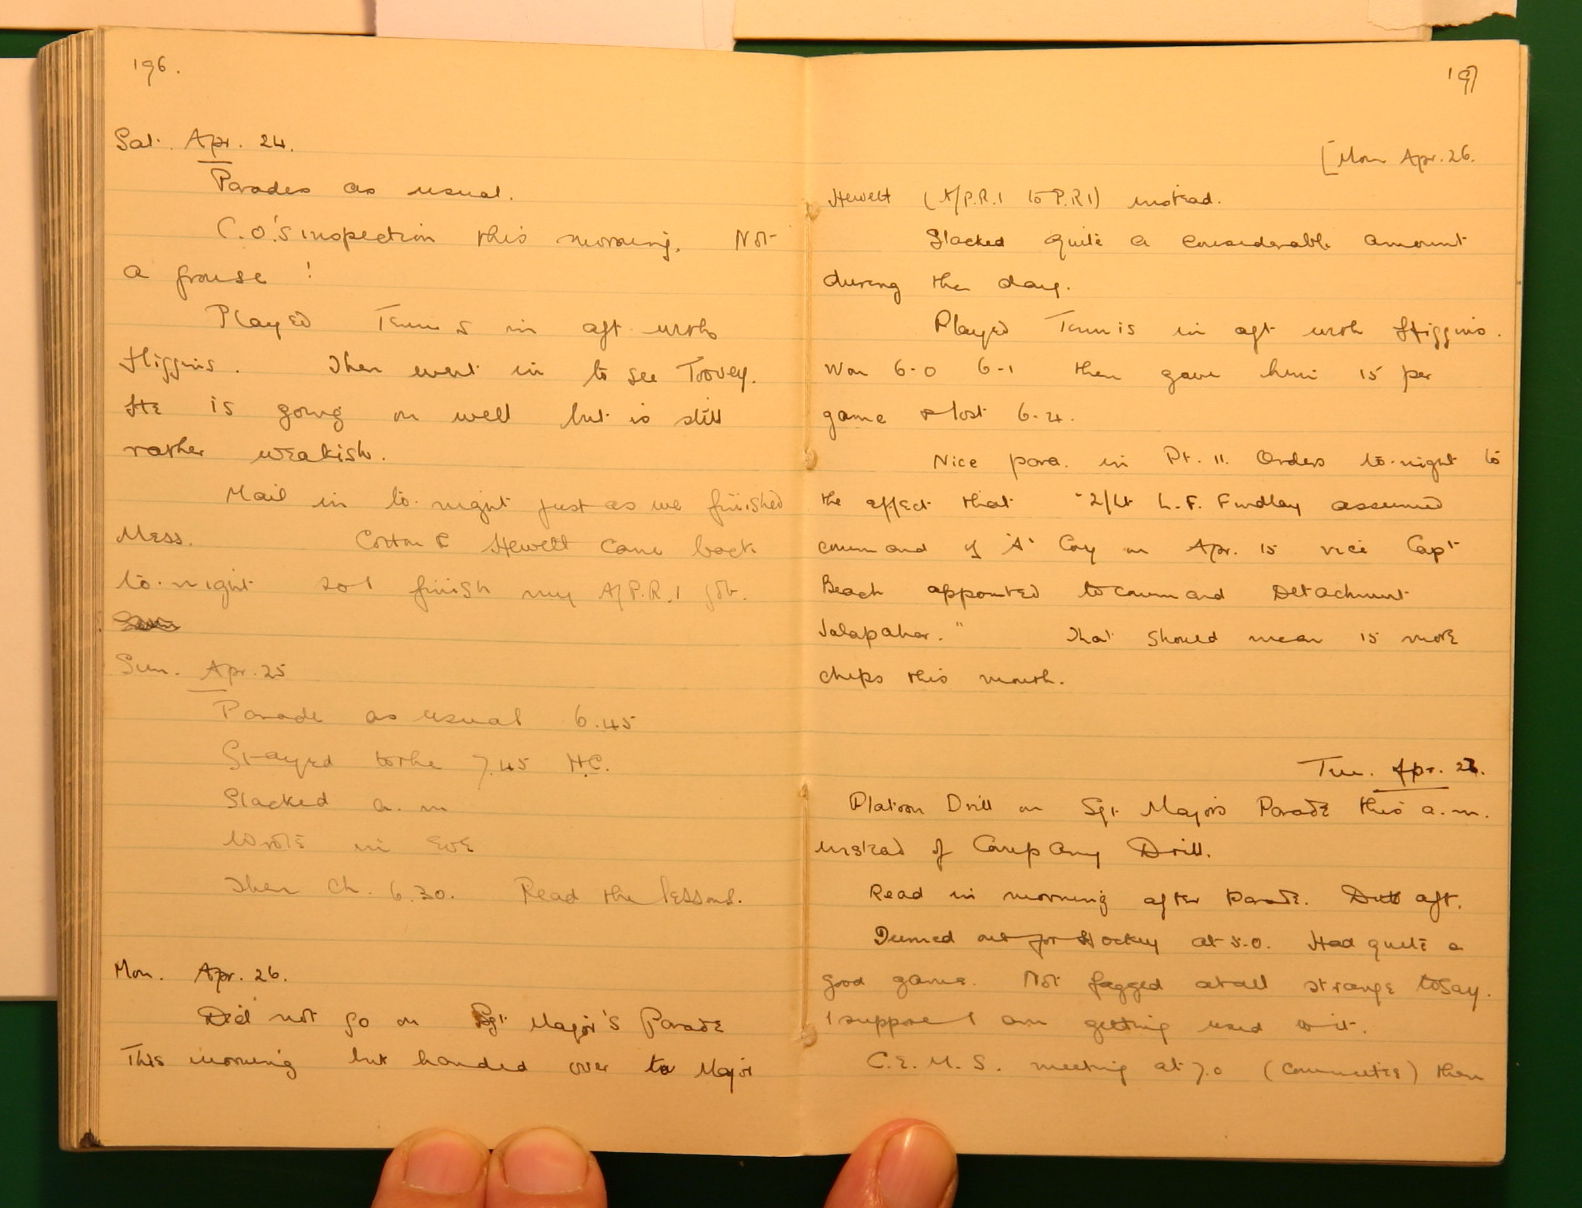 196.
Sat. Apr. 24.
Parades as usual.
C.O.'s inspection this morning. Not
a grouse!
Played Tennis in aft with
Higgins. Then went in to see Toovey.
He is going on well but is still
rather weakish.
Mail in to-night just as we finished
Mess. Hewett came back
to-night so I finish my A/P.R.1 job.
Sun. Apr. 25
Parade as usual 6.45
Stayed to the 7.45 H.C.
Slacked a.m
Wrote in eve
Then Ch. 6.30. Read the lessons.
Mon. Apr. 26.
Did not go on Sgt Major's Parade
This morning but handed over to Major
197
[Mon Apr. 26.
Hewett (A/P.R.1 to P.R1) instead.
Slacked quite a considerable amount
during the day.
Played Tennis in aft with Higgins.
Won 6-0 6-1 then gave him 15 per
game & lost 6-4.
Nice para. in Pt. 11. Orders to-night to
the effect that "2/Lt L.F. Findlay assumed
command of 'A' Coy on Apr. 15 vice Capt
Beach appointed to command Detachment
Jalapahar." That should mean 15 more
chips this month.
Tue. Apr. 27.
Platoon Drill on Sgt Major's Parade this a.m.
instead of Company Drill.
Read in morning after parade. Ditto aft.
Turned out for Hockey at 5.0. Had quite a
good game. Not fagged at all strange to say.
I suppose I am getting used to it.
C.E.M.S. meeting at 7.0 (Committee) then